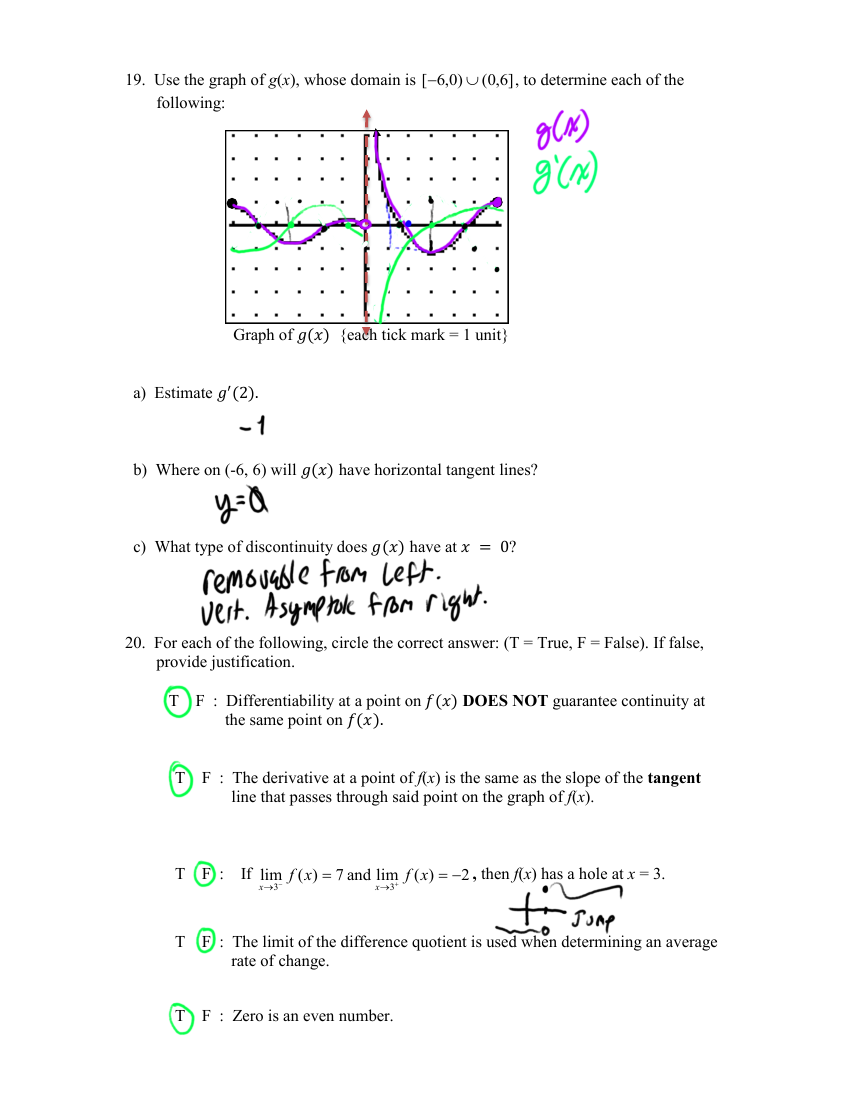 19. Use the graph of g(x), whose domain is [−6,0) ∪ (0,6], to determine each of the
following:
g(x)
g'(x)
Graph of g(x) {each tick mark = 1 unit}
a) Estimate g′(2).
-1
b) Where on (-6, 6) will g(x) have horizontal tangent lines?
y=0
c) What type of discontinuity does g(x) have at x = 0?
removable from left.
vert. Asymptote from right.
20. For each of the following, circle the correct answer: (T = True, F = False). If false,
provide justification.
T F : Differentiability at a point on f(x) DOES NOT guarantee continuity at
the same point on f(x).
T F : The derivative at a point of f(x) is the same as the slope of the tangent
line that passes through said point on the graph of f(x).
T F : If lim x→3⁻ f(x) = 7 and lim x→3⁺ f(x) = −2, then f(x) has a hole at x = 3.
Jump
T F : The limit of the difference quotient is used when determining an average
rate of change.
T F : Zero is an even number.